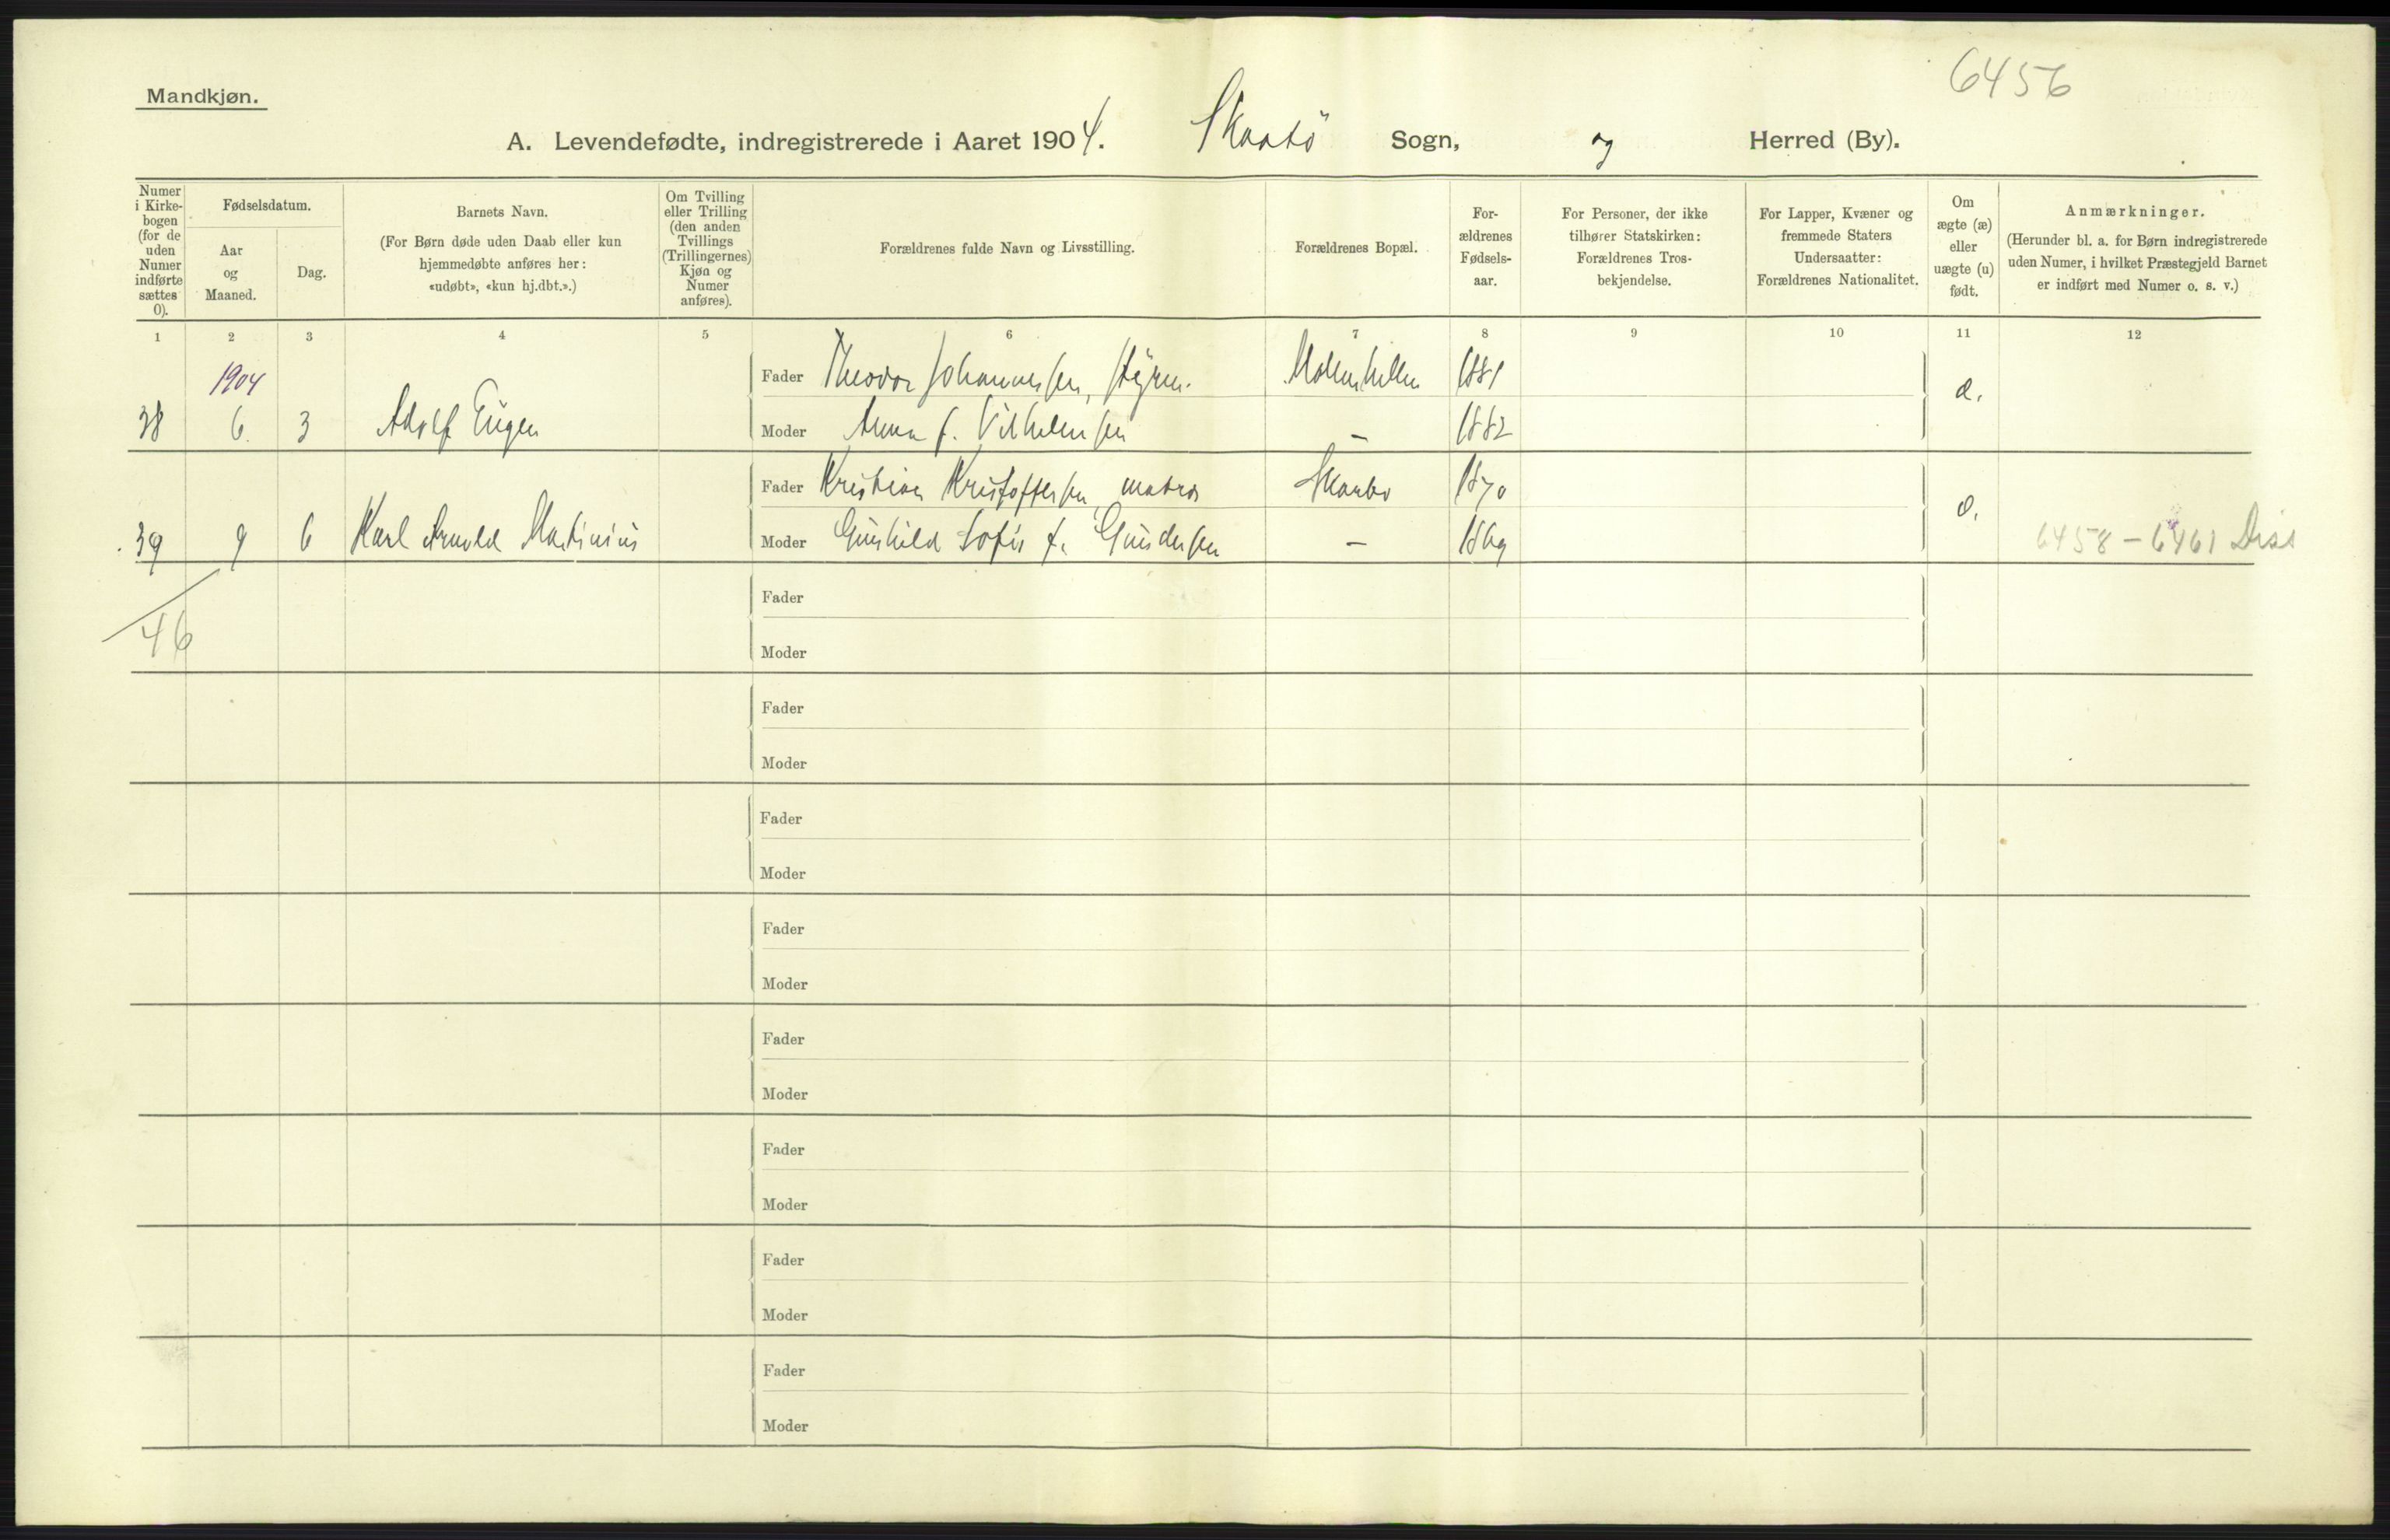 6456
Mandkjøn.
A. Levendefødte, indregistrerede i Aaret 1904. Skaatö Sogn, og Herred (By).
Numer i Kirkebogen (for de uden Numer indførte sættes 0).
Fødselsdatum.
Aar og Maaned.
Dag.
Barnets Navn.
(For Børn døde uden Daab eller kun
hjemmedøbte anføres her:
«udøbt», «kun hj.dbt.».)
Om Tvilling
eller Trilling
(den anden
Tvillings
(Trillingernes)
Kjøn og
Numer
anføres).
Forældrenes fulde Navn og Livsstilling.
Forældrenes Bopæl.
For-
ældrenes
Fødsels-
aar.
For Personer, der ikke
tilhører Statskirken:
Forældrenes Tros-
bekjendelse.
For Lapper, Kvæner og
fremmede Staters
Undersaatter:
Forældrenes Nationalitet.
Om
ægte (æ)
eller
uægte (u)
født.
Anmærkninger.
(Herunder bl. a. for Børn indregistrerede
uden Numer, i hvilket Præstegjeld Barnet
er indført med Numer o. s. v.)
1 2 3 4 5 6 7 8 9 10 11 12
1904
Fader Theodor Johannessen, styrm. 1881
38 6. 3 Adolf Eugen Moder Anna f. Vilhelmsen – 1882
Fader Kristian Kristoffersen, matros 1870
39 9 6 Karl Arnold Martinius Moder Gunhild Sofie f. Gundersen – 1869
6458 – 6461 Diss
46
Fader
Moder
Fader
Moder
Fader
Moder
Fader
Moder
Fader
Moder
Fader
Moder
Fader
Moder
Fader
Moder